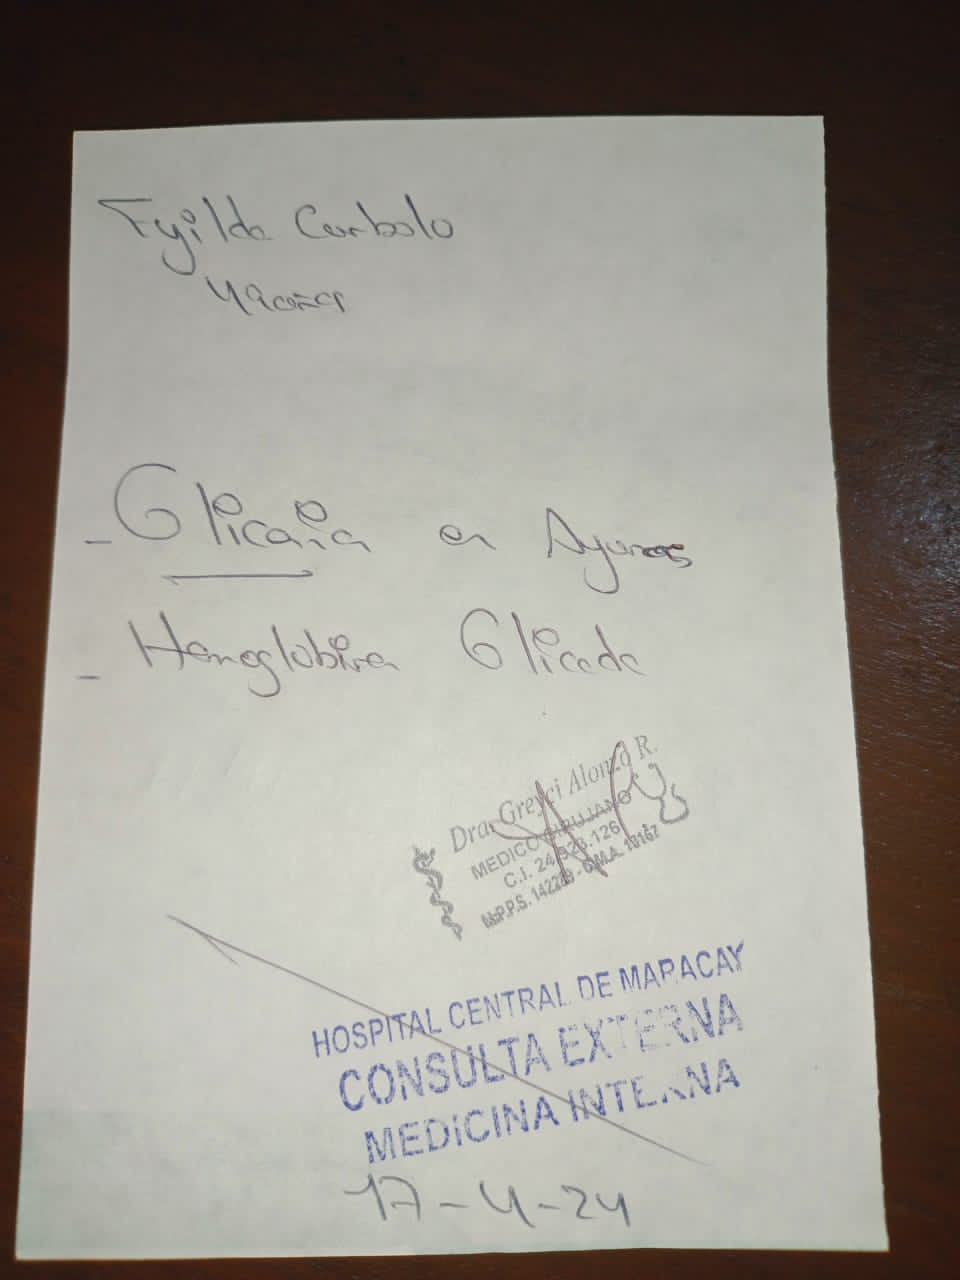 Egilda Carballo
49 años
- Glicemia en Ayunas
- Hemoglobina Glicada
Dra. Greyci Alonzo R.
MEDICO CIRUJANO
C.I. 24.926.126
M.P.P.S. 142289 - C.M.A. 10167
HOSPITAL CENTRAL DE MARACAY
CONSULTA EXTERNA
MEDICINA INTERNA
17-4-24